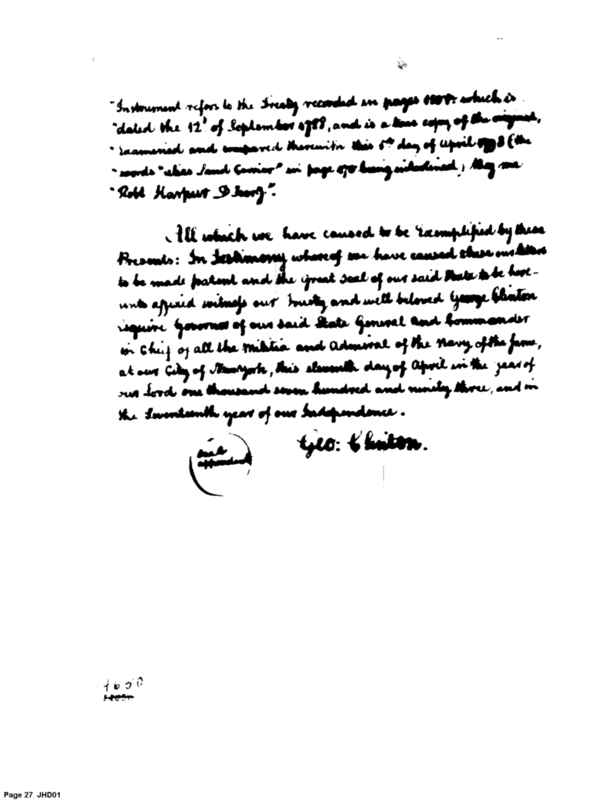 "Instrument refers to the Treaty recorded in pages which is
"dated the 12 of September 1788, and is a true copy of the original,
"examined and compared therewith this day of April (the
"words "alias Land Carrier" in page being interlined) by me
"Robt Harpur D Secy".
All which we have caused to be Exemplified by these
Presents: In Testimony whereof we have caused these our letters
to be made patent and the great seal of our said State to be here-
unto affixed witness our trusty and well beloved George Clinton
esquire Governor of our said State General and Commander
in Chief of all the Militia and Admiral of the Navy of the same,
at our City of Newyork, this eleventh day of April in the year of
our Lord one thousand seven hundred and ninety three, and in
the Seventeenth year of our Independence.
Geo: Clinton.
Seal
appendant
Page 27 JHD01